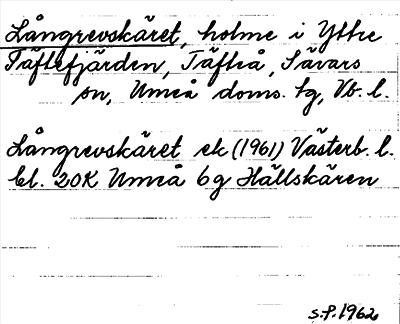 Långrevskäret, holme i Yttre
Täftefjärden, Täfteå, Sävars
sn, Umeå doms. tg, Vb. l.
Långrevskäret ek (1961) Västerb. l.
bl. 20K Umeå 6g Hällskären
S.P. 1962